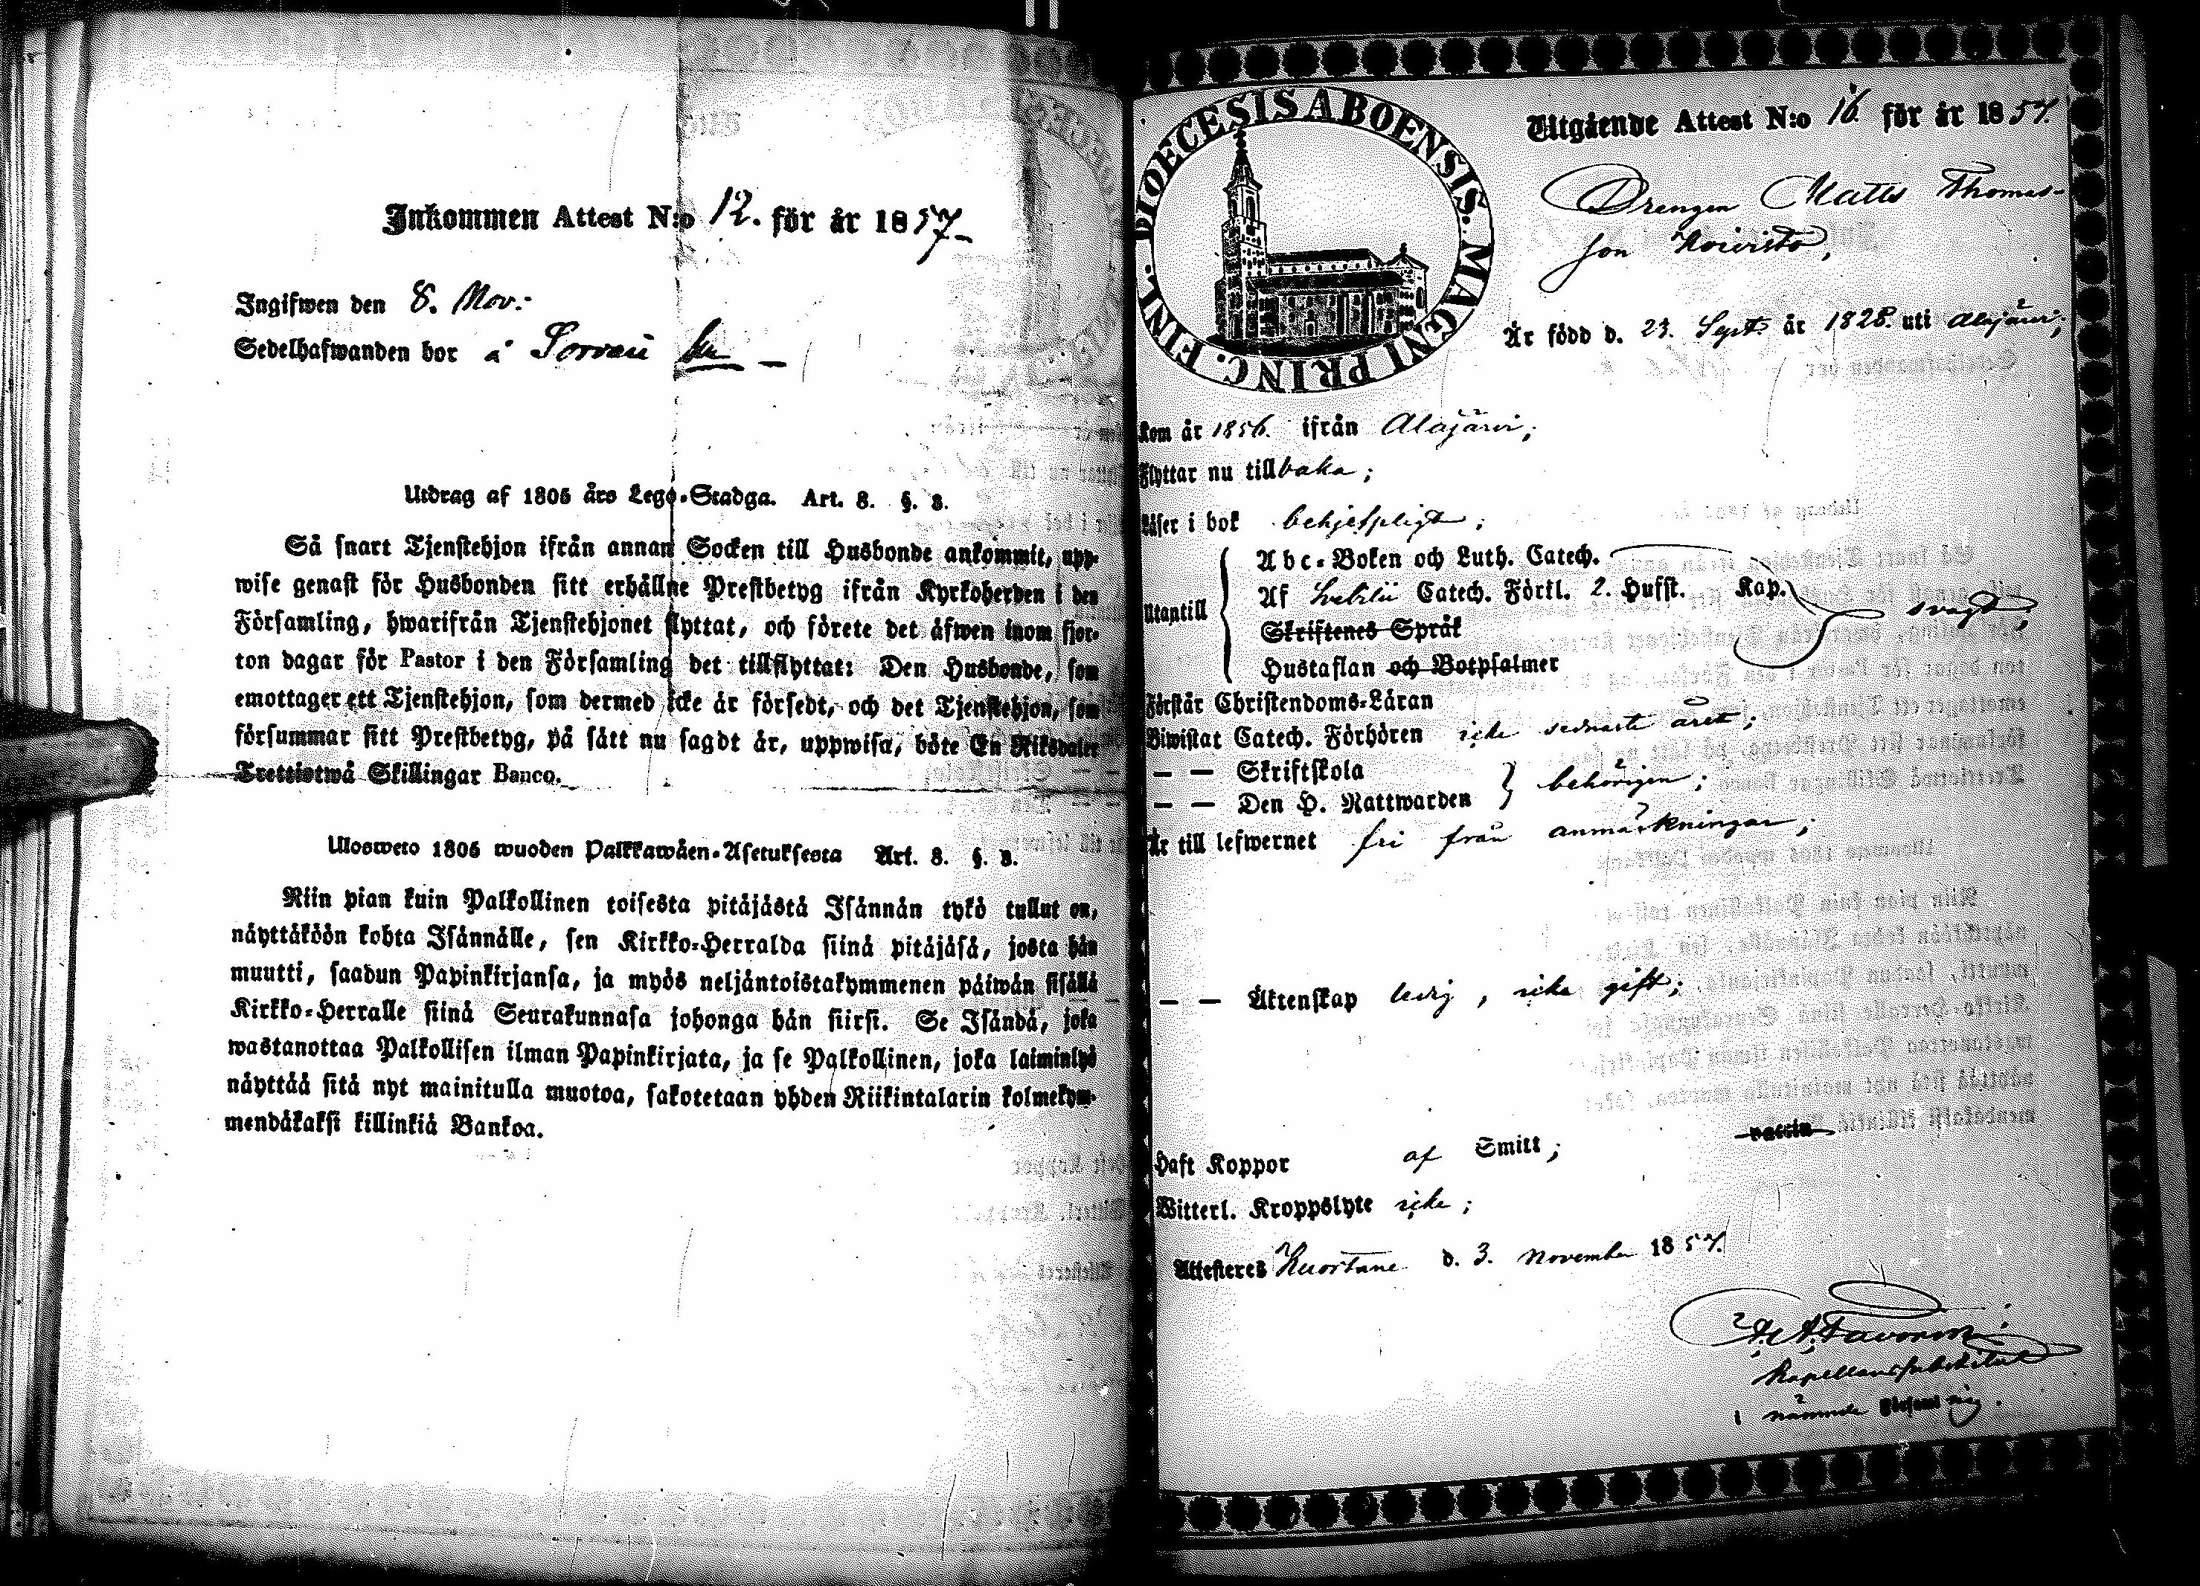 Inkommen Attest N:o 12. för år 1857
Ingifwen den 8. Nov:
Sedelhafwanden bor å
Utdrag af 1805 års Lego-Stadga. Art. 8. §. 8.
Så snart Tjenstehjon ifrån annan Socken till Husbonde ankommit, upp-
wise genast för Husbonden sitt erhållne Prestbetyg ifrån Kyrkoherden i den
Församling, hwarifrån Tjenstehjonet flyttat, och förete det äfwen inom fjor-
ton dagar för Pastor i den Församling det tillflyttat: Den Husbonde, som
emottager ett Tjenstehjon, som dermed icke är försedt, och det Tjenstehjon, som
försummar sitt Prestbetyg, på sätt nu sagdt är, uppwisa, böte En Riksdaler
Trettiotwå Skillingar Banco.
Ulosweto 1805 wuoden Palkkawäen-Asetuksesta Art. 8. §. 8.
Niin pian kuin Palkollinen toisesta pitäjästä Isännän tykö tullut on,
näyttäköön kohta Isännälle, sen Kirkko-Herralda siinä pitäjäsä, josta hän
muutti, saadun Papinkirjansa, ja myös neljäntoistakymmenen päiwän sisällä
Kirkko-Herralle siinä Seurakunnasa johonga hän siirsi. Se Isändä, joka
wastanottaa Palkollisen ilman Papinkirjata, ja se Palkollinen, joka laiminlyö
näyttää sitä nyt mainitulla muotoa, sakotetaan yhden Riikintalarin kolmekym-
mendäkaksi killinkiä Bankoa.
DIOECESIS ABOENSIS. MAGNI PRINC. FINL.
Utgående Attest N:o 16. för år 1857.
Drengen Matts Thomas-
son Koivisto,
Är född d. 23. Sept. år 1828. uti Alajärvi;
Kom år 1856. ifrån Alajärvi;
Flyttar nu tillbaka;
Läser i bok behjelpligt;
Utantill
Abc-Boken och Luth. Catech.
Af Svebilii Catech. Förkl. 2. Hufst. Kap. svagt;
Skriftenes Språk
Hustaflan och Botpsalmer
Förstår Christendoms-Läran
Biwistat Catech. Förhören icke sednaste året;
— — Skriftskola
— — Den H. Nattwarden behörigen;
Är till lefwernet fri från anmärkningar;
— — Äktenskap ledig, icke gift;
vaccin
Haft Koppor af Smitt;
Witterl. Kroppslyte icke;
Attesteres Kuortane d. 3. November 1857.
Kapellans substitut
i nämnde Församling.